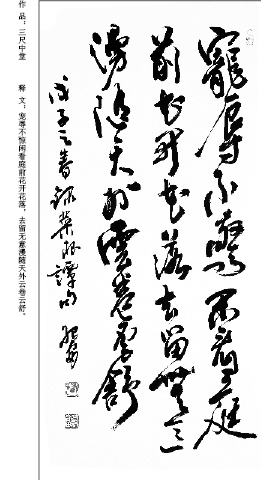 寵辱不驚閑看庭
前花開花落去留無意
漫隨天外雲卷雲舒
戊子之春錄菜根譚句
作 品：三尺中堂 释 文：宠辱不惊闲看庭前花开花落，去留无意漫随天外云卷云舒。